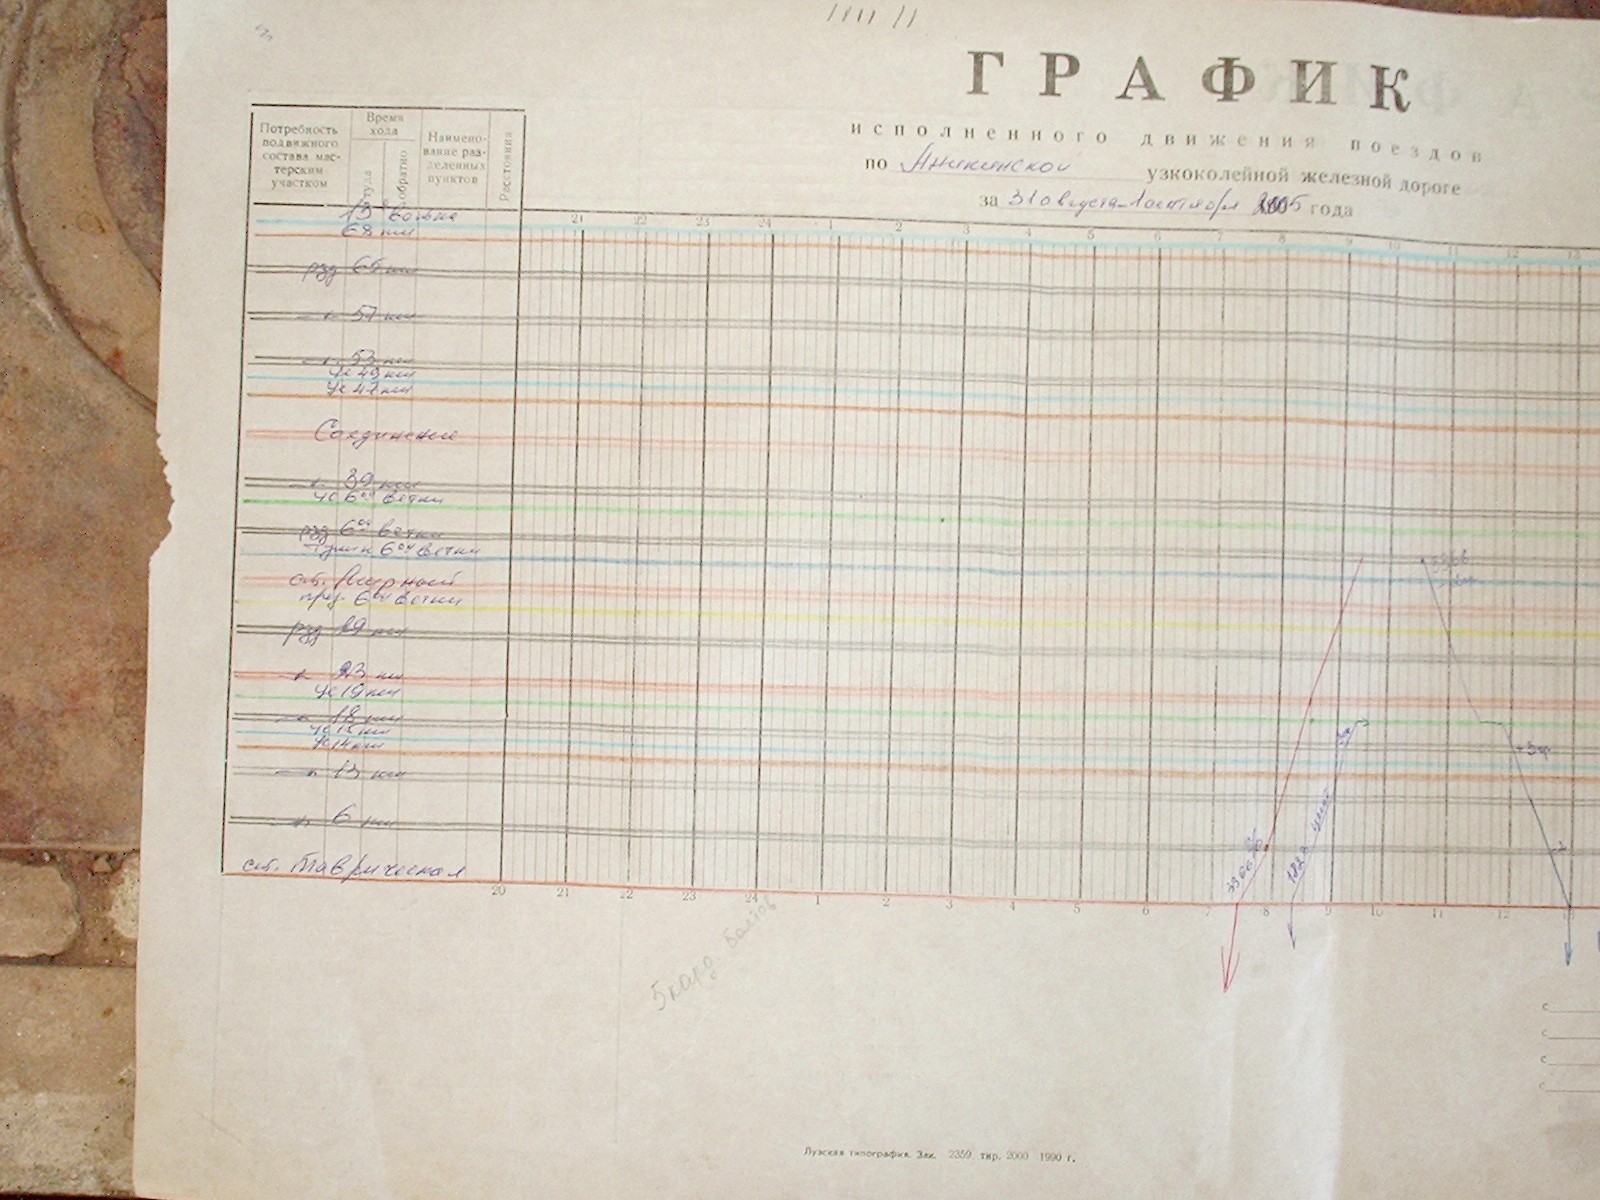 ГРАФИК
исполненного движения поездов
по Аникинской узкоколейной железной дороге
за 31 августа-1 сентября 2005 года
Потребность подвижного состава мастерским участком
Время хода
туда
обратно
Наименование разделенных пунктов
Расстояния
21 22 23 24 1 2 3 4 5 6 7 8 9 10 11 12 13
68 км
рзд 65 км
57 км
53 км
Ус 49 км
Ус 47 км
Соединение
39 км
Ус 6ой ветки
рзд 6ой ветки
6ой ветки
ст. Мирный
пред. 6ой ветки
рзд 29 км
23 км
Ус 19 км
18 км
Ус 15 км
Ус 14 км
13 км
6 км
ст. Таврическая
20 21 22 23 24 1 2 3 4 5 6 7 8 9 10 11 12 13
5 кард болтов
Лузская типография. Зак. 2359 тир. 2000 1990 г.